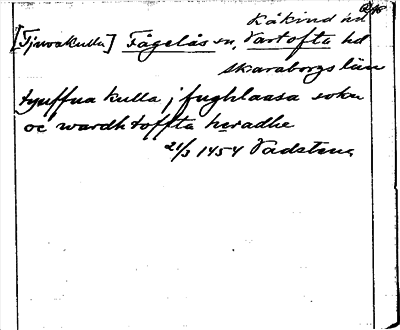 Kåkind hd
[Tjuvakulla] Fågelås sn, Vartofta hd
Skaraborgs län
tyuffua kulla j fughlaasa sokn
oc wardh toffta heradhe
21/3 1454 Vadstena